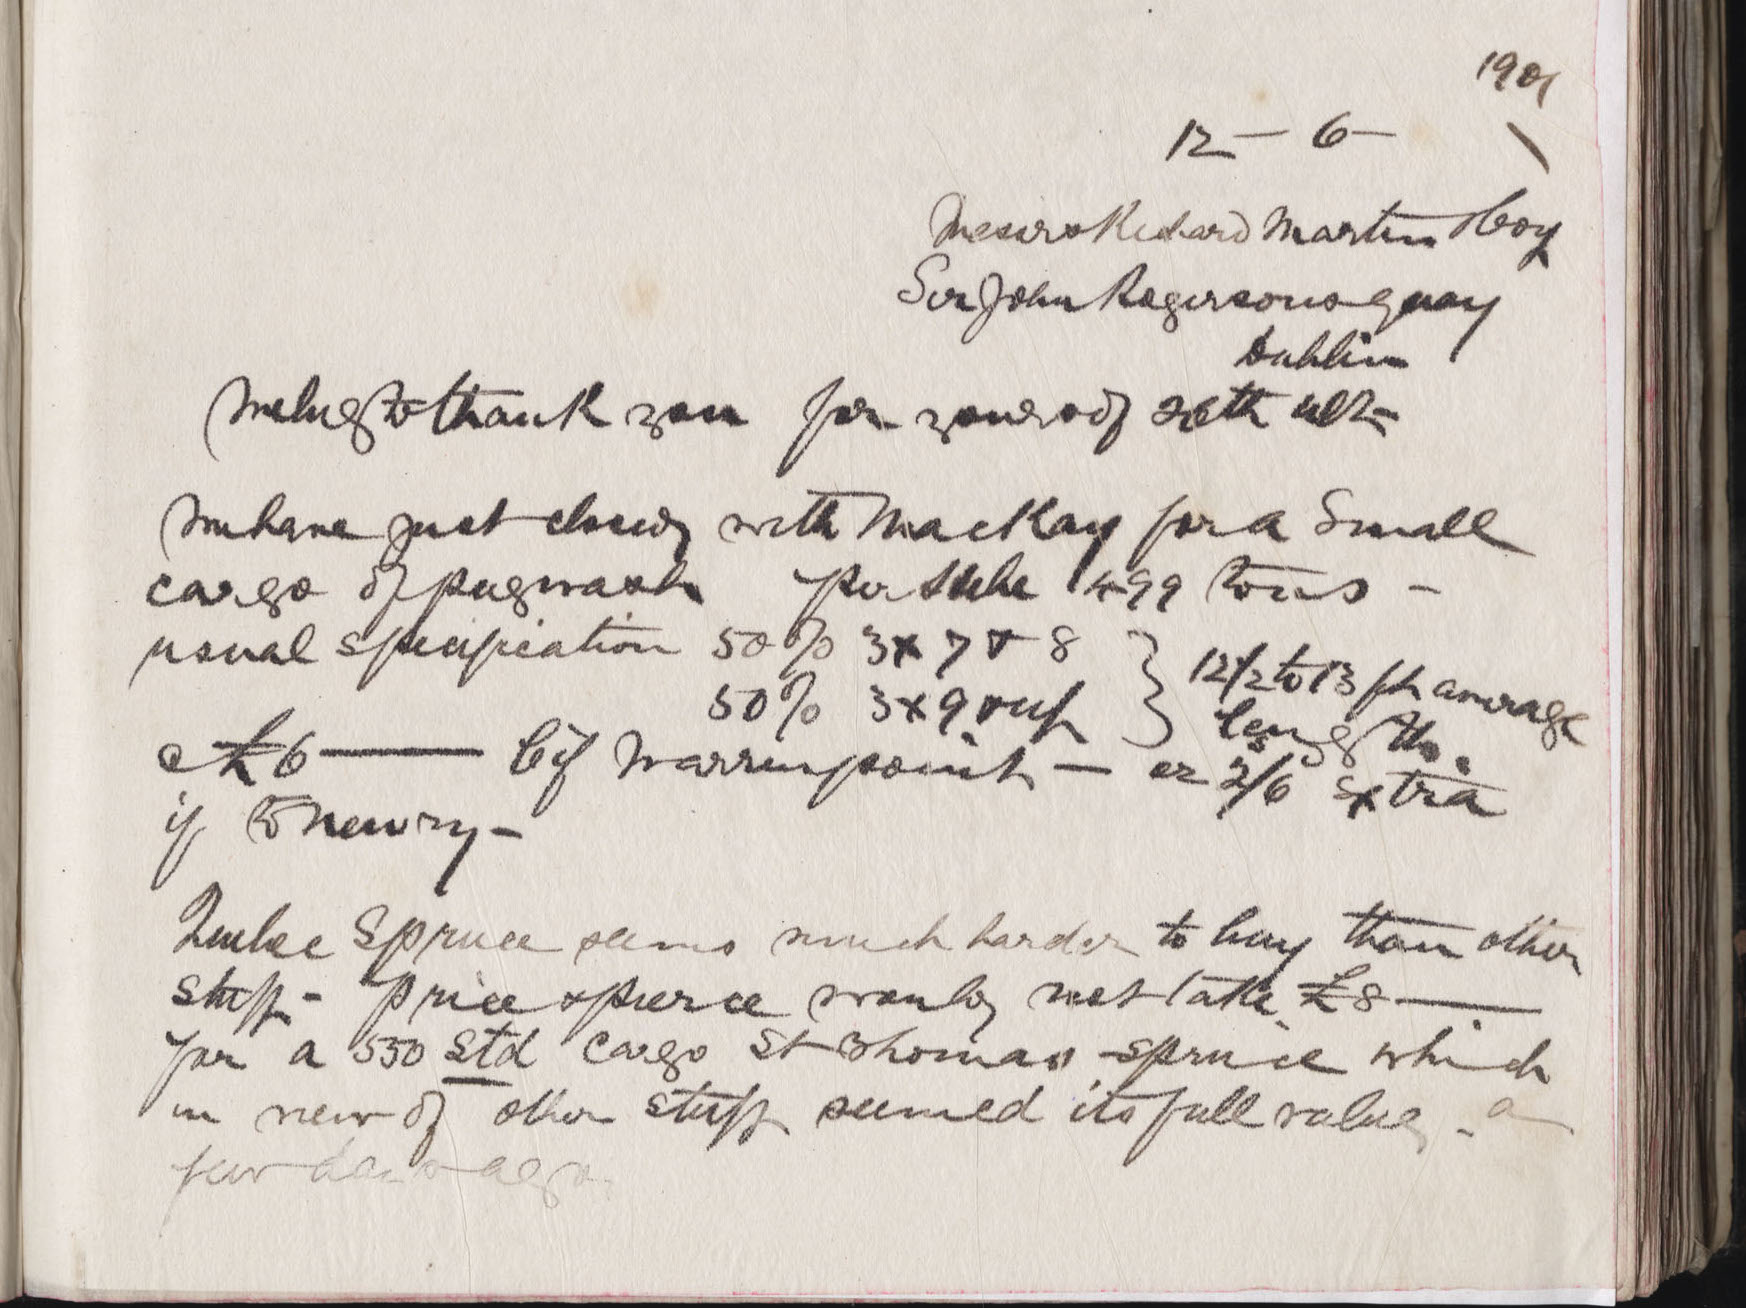 1901
12 - 6 -
Messrs Richard Martin & Coy
Sir John Rogersons Quay
Dublin
We beg to thank you for yours of 26th ult -
We have just closed with MacKay for a Small
cargo of pugwash per 499 tons -
usual specification 50% 3 x 7 & 8 } 12/2 to 13 ft average
50% 3 x 9 & up } lengths.
@ £6 —— Cif Warrenpoint — or 2/6 Extra
if to Newry -
Quebec Spruce seems much harder to buy than other
stuff - Price & Pierce would not take £8 ——
for a 550 Std cargo St Thomas spruce which
in view of other stuff seemed its full value - a
few days ago.